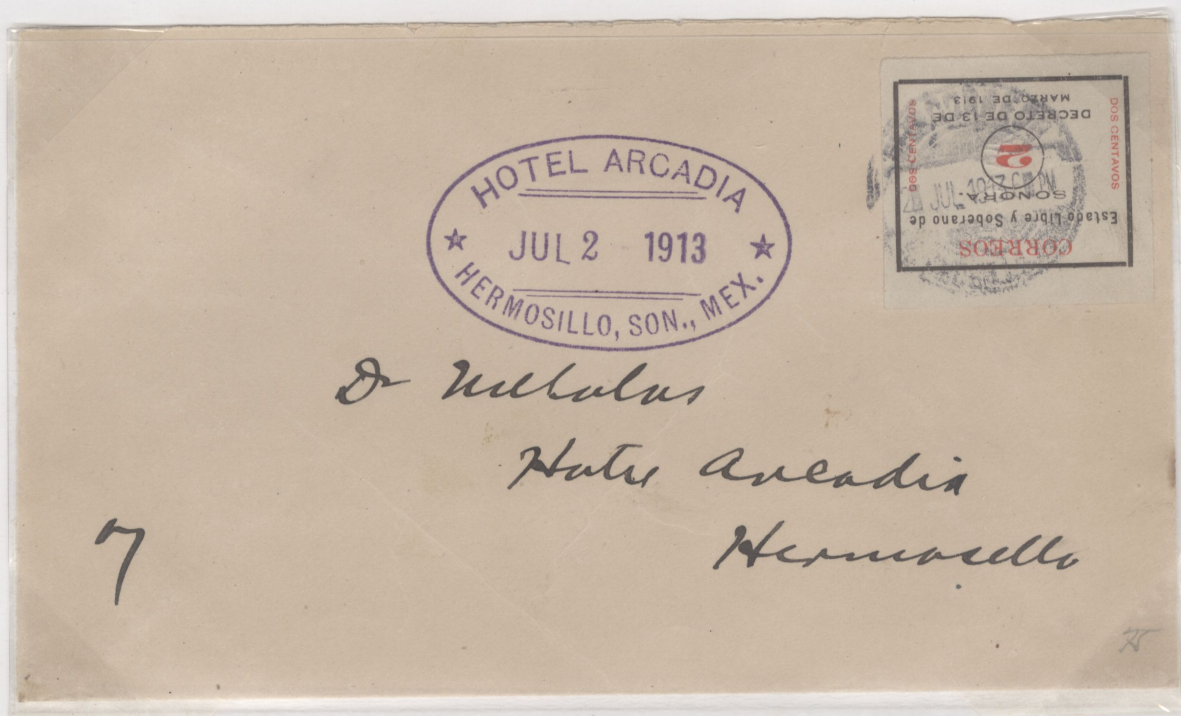 HOTEL ARCADIA
JUL 2 1913
HERMOSILLO, SON., MEX.
CORREOS
Estado Libre y Soberano de
SONORA
2
DECRETO DE 13 DE
MARZO DE 1913
DOS CENTAVOS
DOS CENTAVOS
JUL 1913 PM
Dr Nicholas
Hotel Arcadia
Hermosello
7